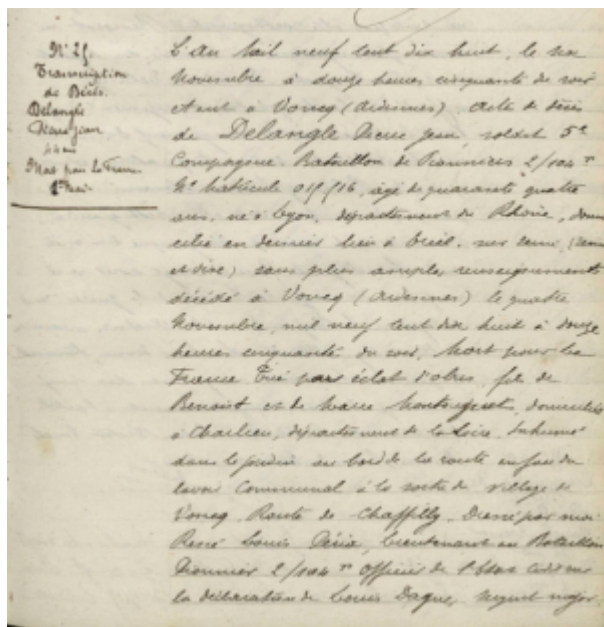 Transcription
de Décès.
Delangle
Pierre Jean
44 ans
Mort pour la France
L'An mil neuf cent dix huit, le
Novembre à douze heures cinquante du soir
étant à Voncq (Ardennes) Acte de décès
de Delangle Pierre Jean, soldat 5e
Compagnie Bataillon de Pionniers 2/104e
No Matricule âgé de quarante quatre
ans, né à Lyon, département du Rhône, domi
cilié en dernier lieu à Triel, sur Seine, (Seine
et Oise) sans plus amples renseignements
décédé à Voncq (Ardennes) le quatre
Novembre, mil neuf cent dix huit à douze
heures cinquante du soir, Mort pour la
France Tué par éclat d'obus, fils de
Benoist et de domiciliés
à Charlieu, département de la Loire. Inhumé
dans le jardin au bord de la route en face du
lavoir Communal à la sortie du village de
Voncq, Route de Dressé par moi
René Louis Lieutenant au Bataillon
Pionnier 2/104e Officier de l'État Civil sur
la déclaration de Louis sergent major